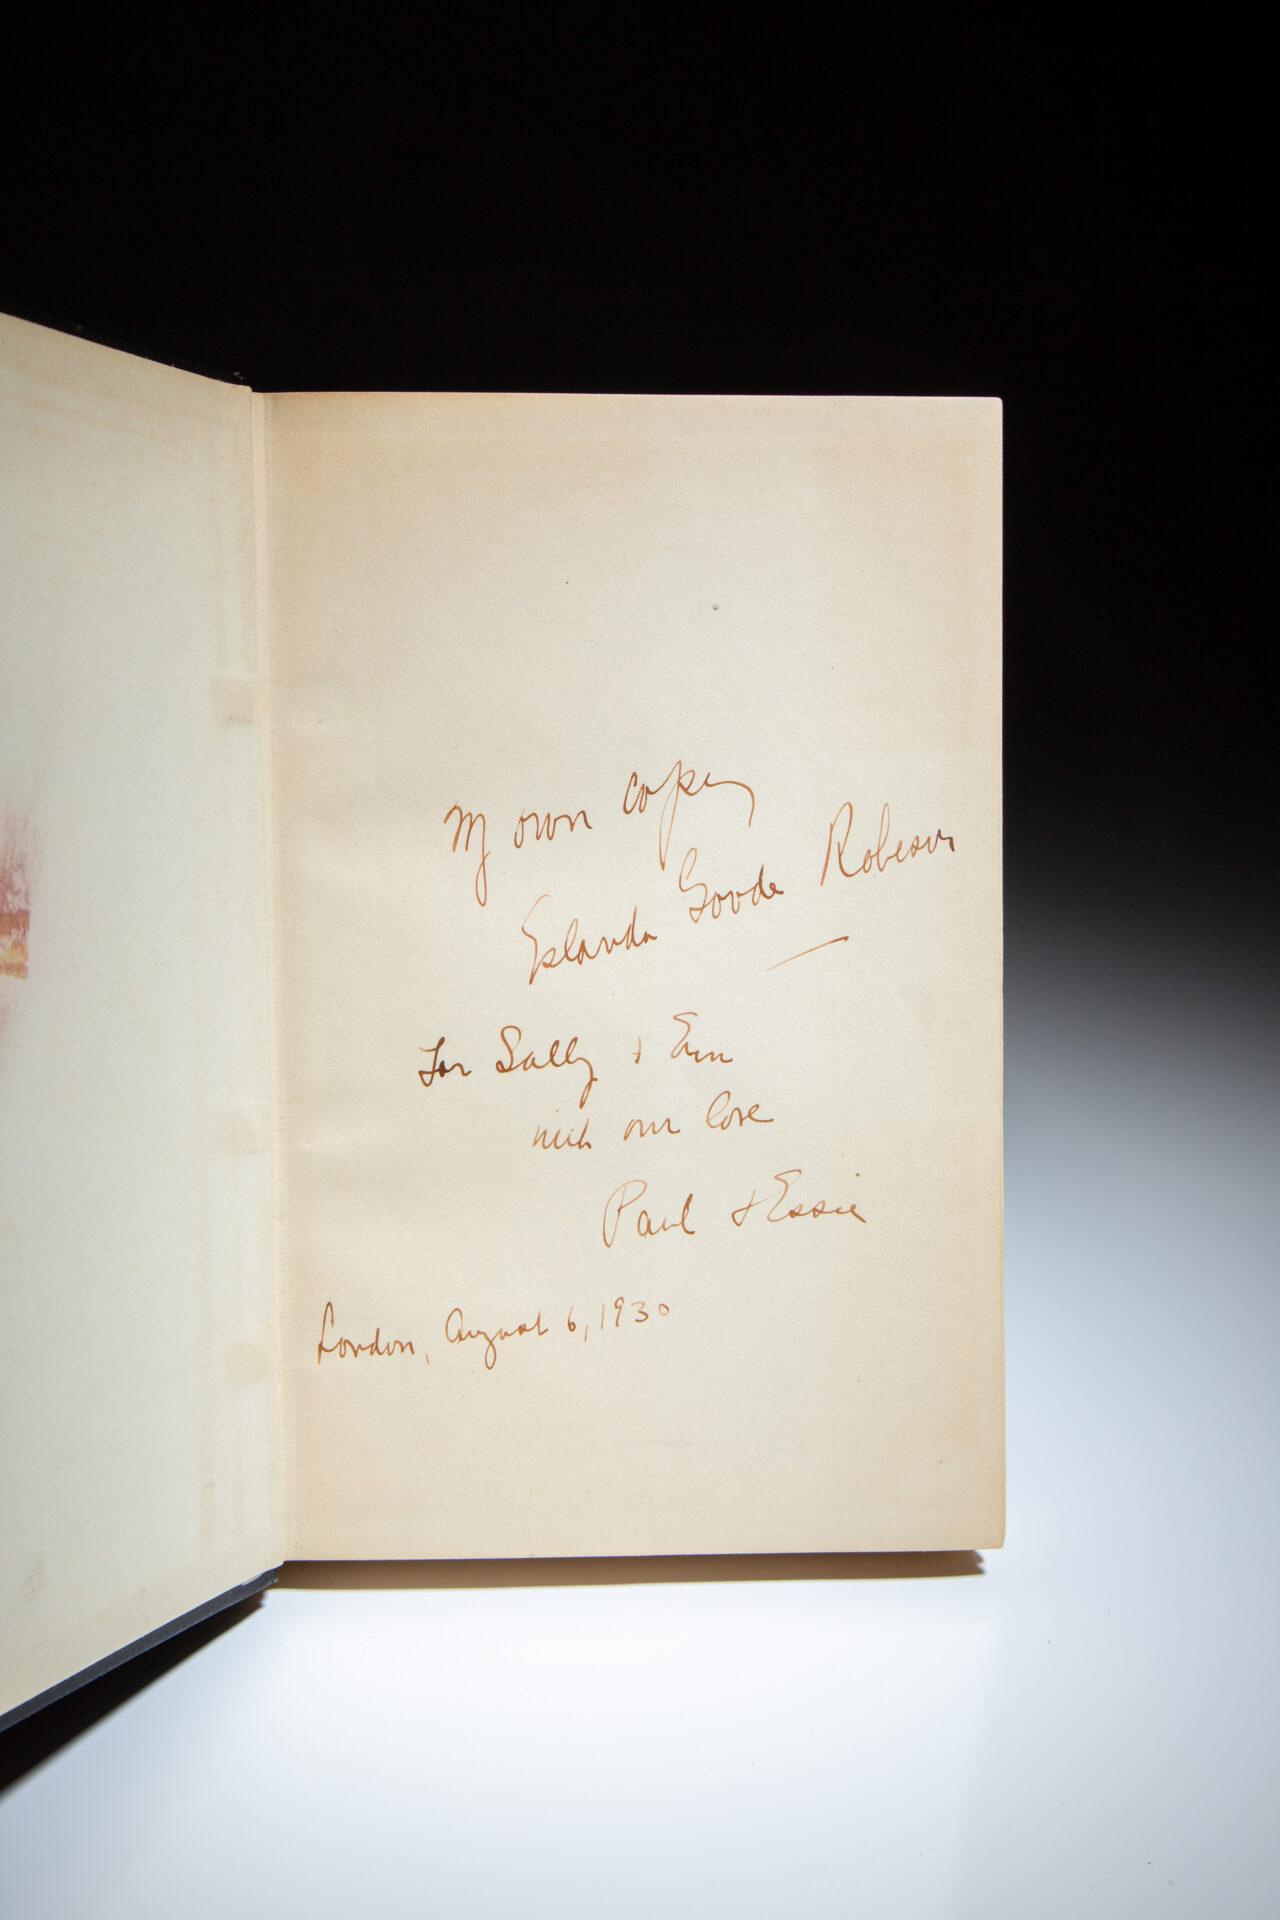 My own copy
Eslanda Goode Robeson
For Sally +
with our love
Paul & Essie
London, August 6, 1930